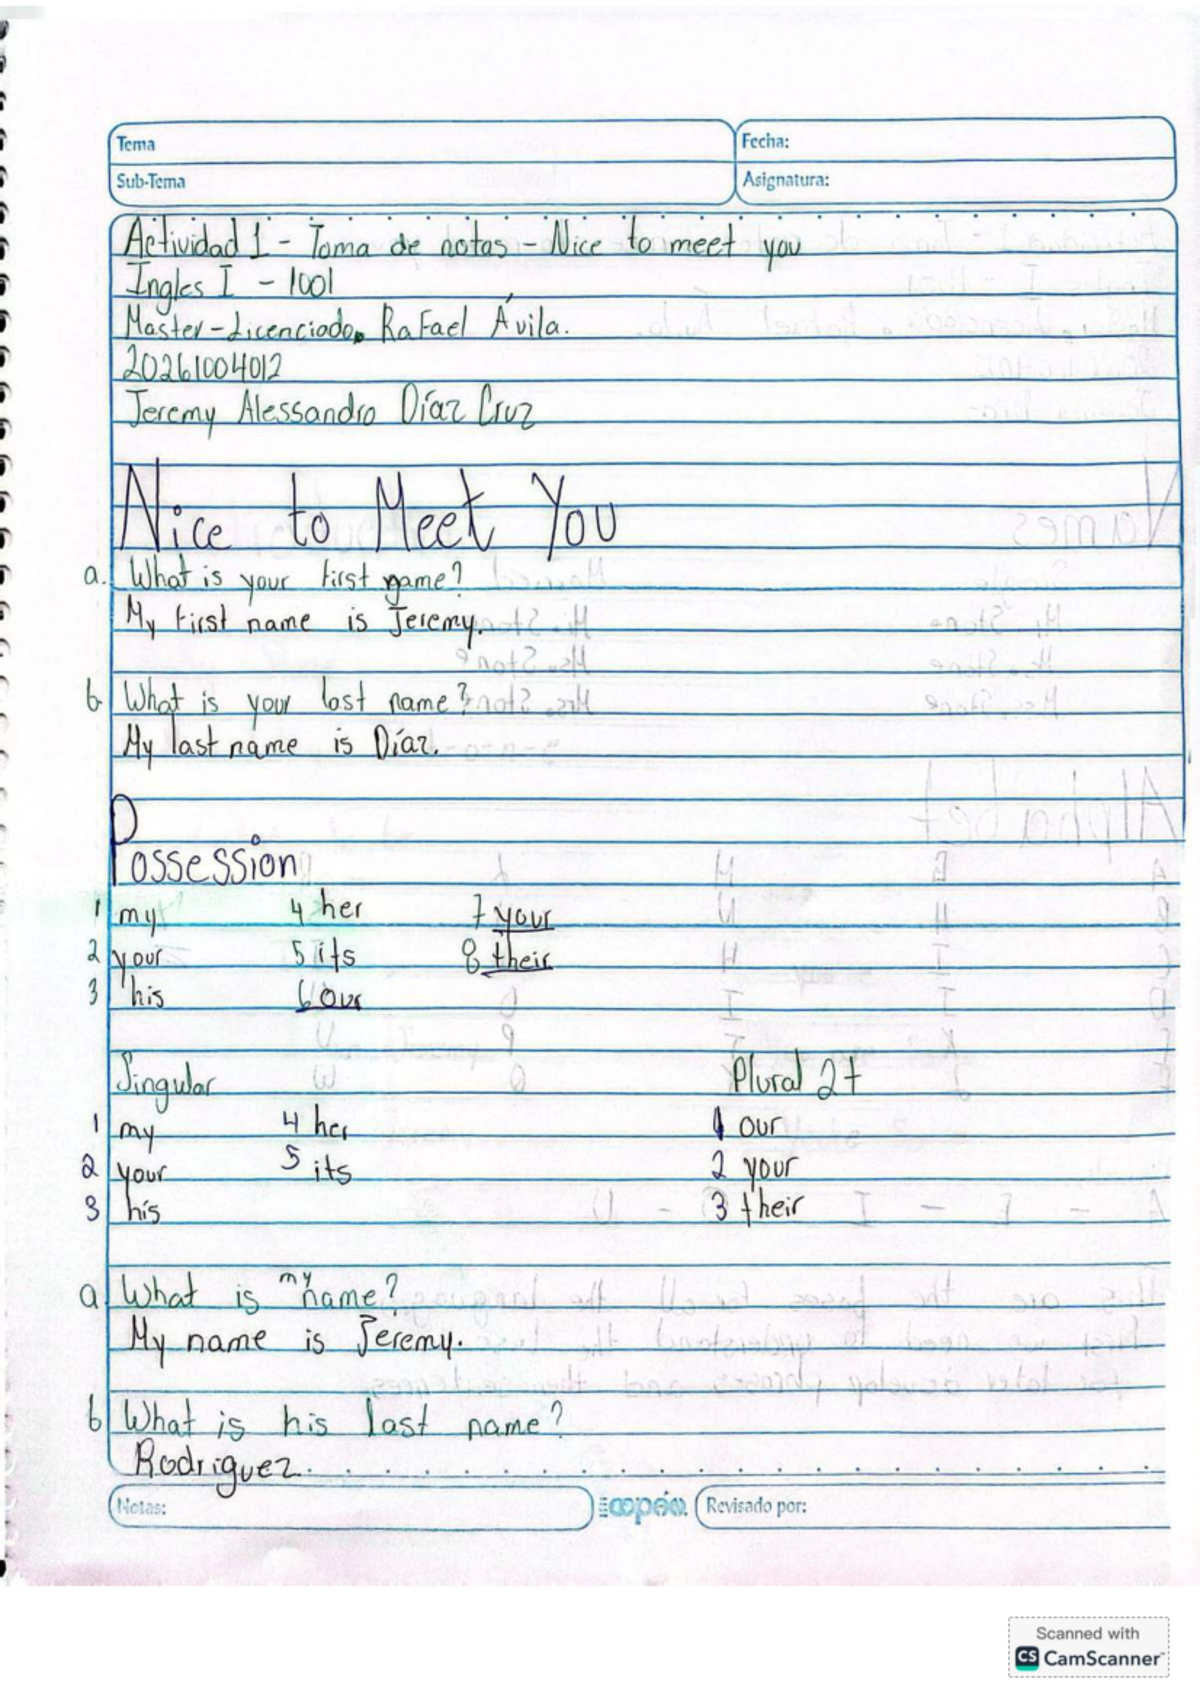 Tema
Fecha:
Sub-Tema
Asignatura:
Actividad 1 - Toma de notas - Nice to meet you
Ingles I - 1001
Master-Licenciado. Rafael Ávila.
20261004012
Jeremy Alessandro Díaz Cruz
Nice to Meet You
a. What is your first name?
My first name is Jeremy.
b What is your last name?
My last name is Díaz.
Possession
1 my 4 her 7 your
2 your 5 its 8 their
3 his 6 our
Singular Plural 2+
1 my 4 her 1 our
2 your 5 its 2 your
3 his 3 their
a What is my name?
My name is Jeremy.
b What is his last name?
Rodriguez
Notas:
copán
Revisado por:
Scanned with
CS CamScanner